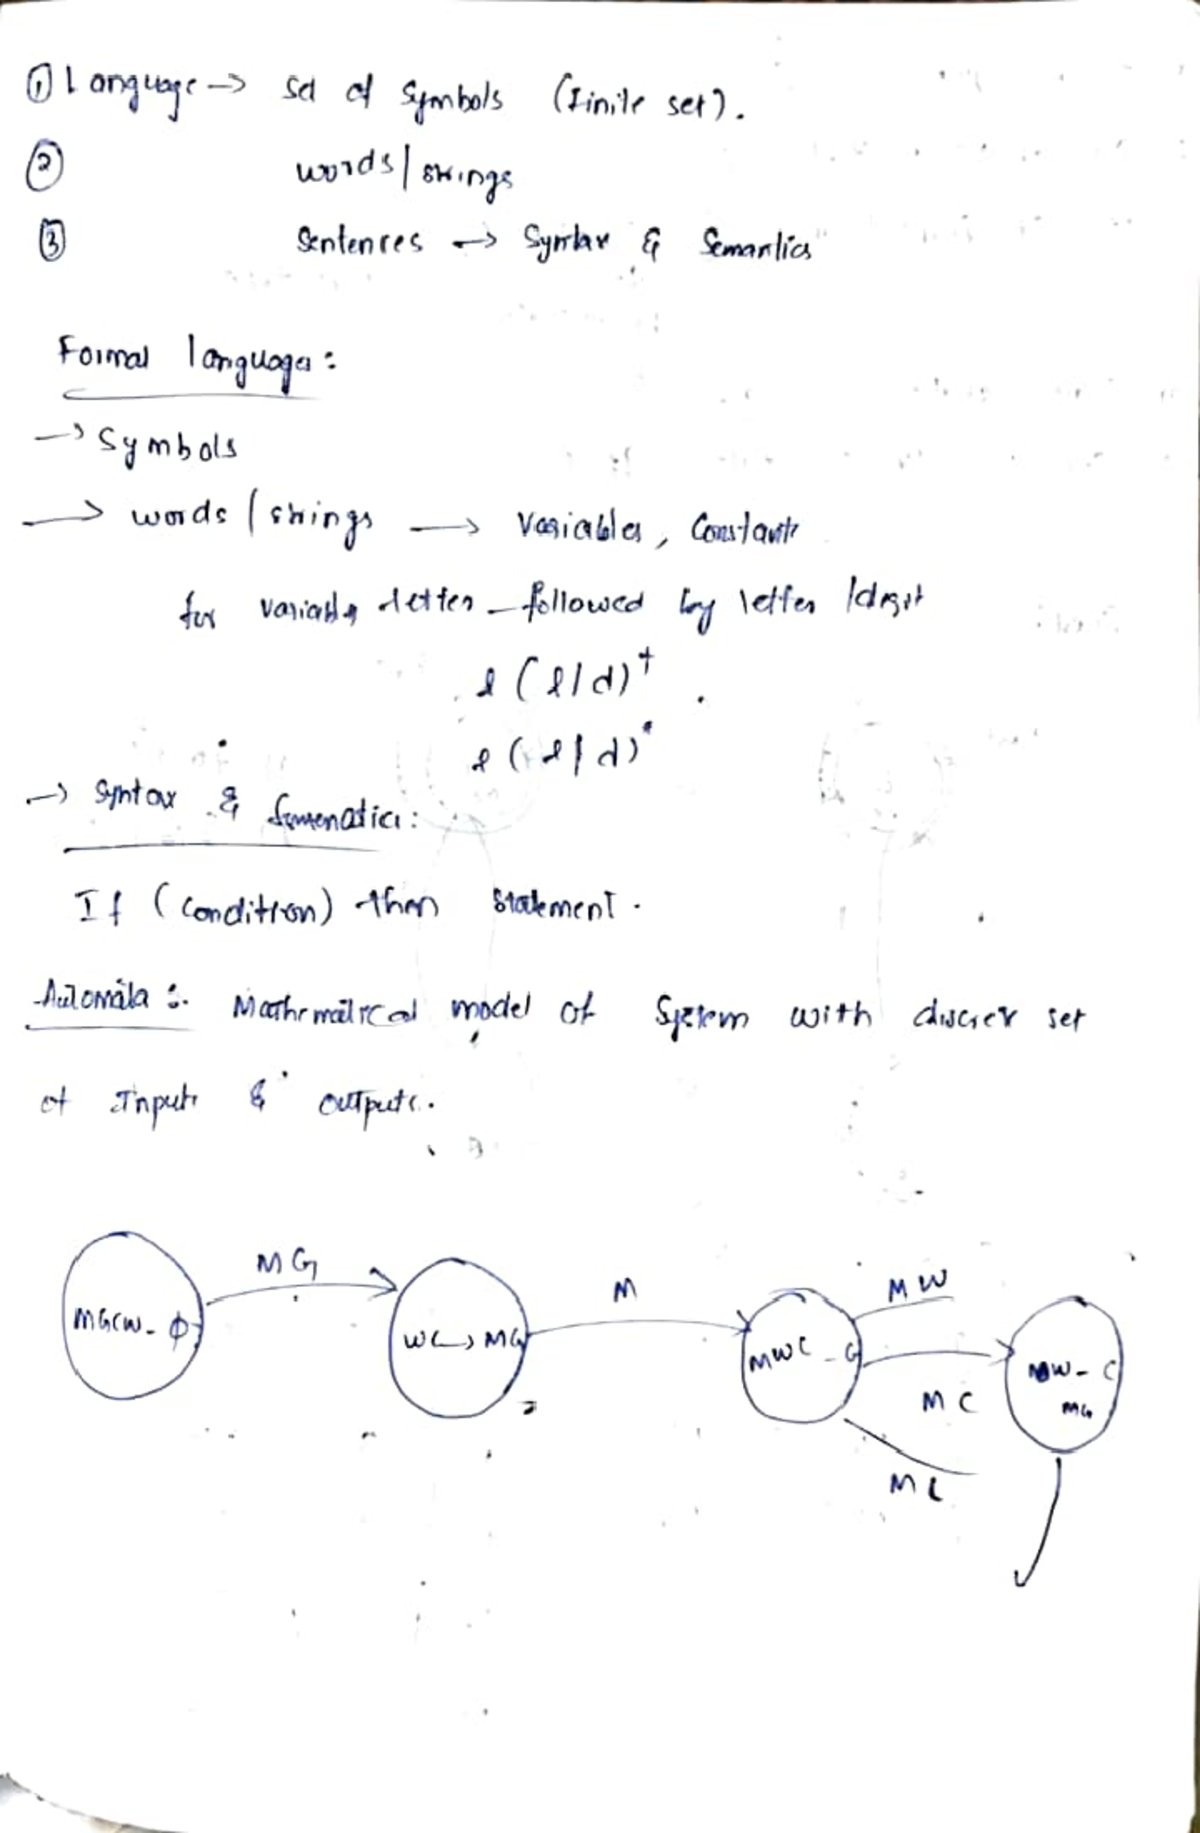 ① Language → set of symbols (finite set).
② words/strings
③ Sentences → Syntax & Semantics
Formal languages:
→ Symbols
→ words/strings → Variables, Constants
for variables letter followed by letter/digit
l(l/d)⁺
l(l/d)*
→ Syntax & Semenatics:
If (condition) then statement.
Automata :. Mathematical model of System with discrete set
of Inputs & outputs.
MG M MW
MGCW-ϕ WC→MG MWC-G W-C
MG
MC
MC